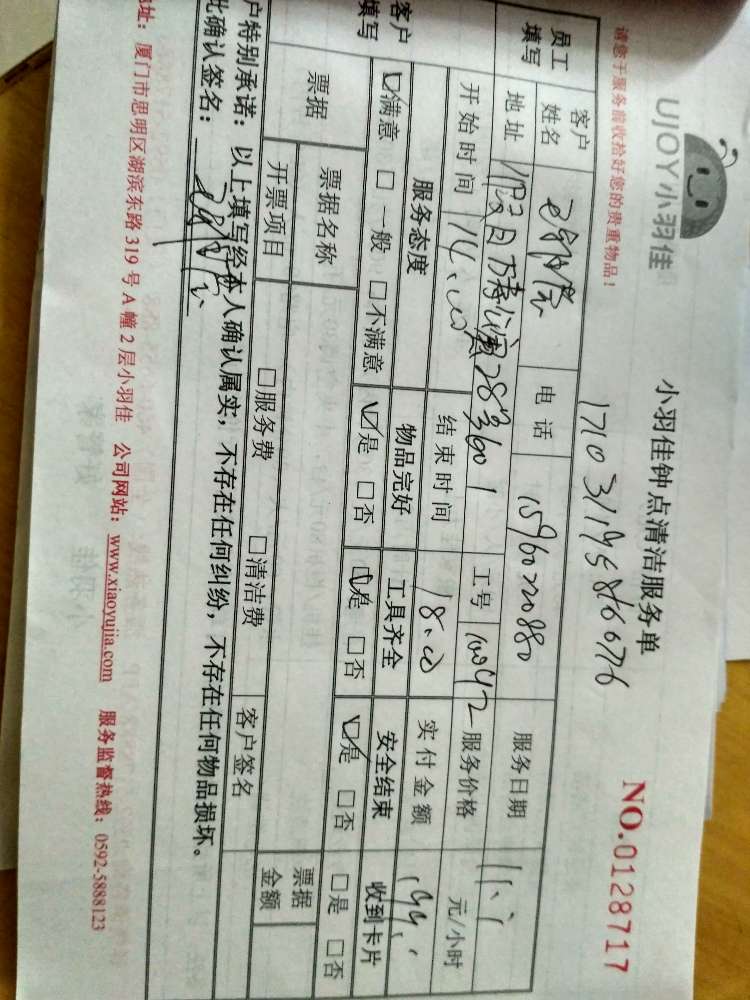 UJOY小羽佳
小羽佳钟点清洁服务单
NO.0128717
请您于服务前收拾好您的贵重物品！
员工填写
客户姓名 电话 15960220880 服务日期 11.1
地址 工号 10042 服务价格 元/小时
开始时间 14:00 结束时间 18:00 实付金额
客户填写
服务态度 物品完好 工具齐全 安全结束 收到卡片
☑满意 □一般 □不满意 ☑是 □否 ☑是 □否 ☑是 □否 □是 □否
票据 票据名称 票据金额
开票项目 □服务费 □清洁费 客户签名
户特别承诺：以上填写经本人确认属实，不存在任何纠纷，不存在任何物品损坏。
此确认签名：
址：厦门市思明区湖滨东路319号A幢2层小羽佳 公司网站：www.xiaoyujia.com 服务监督热线：0592-5888123